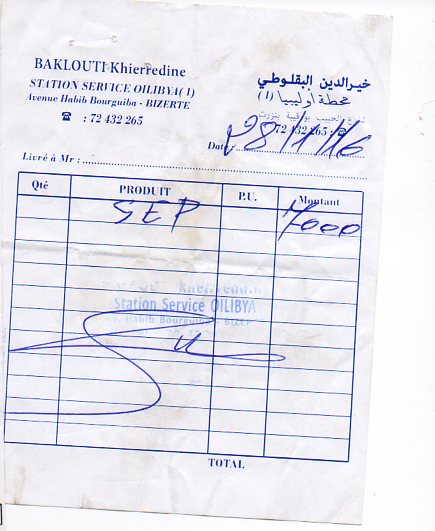 BAKLOUTI Khierredine
STATION SERVICE OILIBYA( 1 )
Avenue Habib Bourguiba - BIZERTE
☎ : 72 432 265
خير الدين البقلوطي
محطة أوليبيا (1)
شارع الحبيب بورقيبة بنزرت
☎ : 72 432 265
Date : 28/1/16
Livré à Mr :
Qté PRODUIT P.U. Montant
7000
Khierredine
Station Service OILIBYA
Habib Bourguiba - BIZER
TOTAL